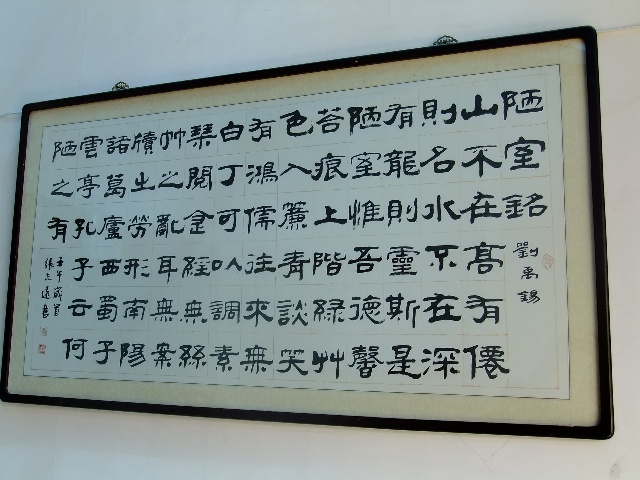 陋室銘
劉禹錫
山不在高有僊
則名水不在深
有龍則靈斯是
陋室惟吾德馨
苔痕上階綠艸
色入簾青談笑
有鴻儒往來無
白丁可以調素
琴閱金經無絲
竹之亂耳無案
牘之勞形南陽
諸葛廬西蜀子
雲亭孔子云何
陋之有
壬午歲
張 書